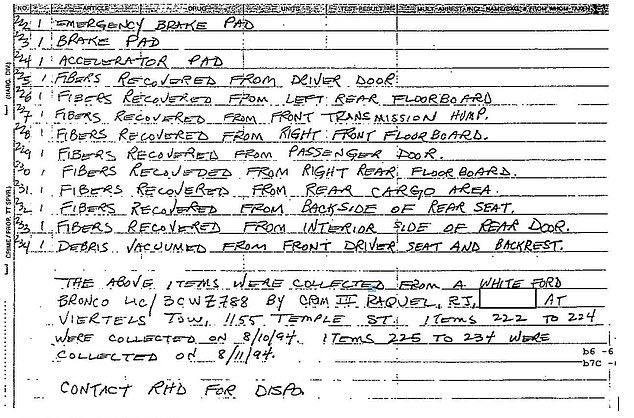 NO. ARTICLE DRUG UNITS TEST RESULTS
222 1 EMERGENCY BRAKE PAD
223 1 BRAKE PAD
224 1 ACCELERATOR PAD
225 1 FIBERS RECOVERED FROM DRIVER DOOR
226 1 FIBERS RECOVERED FROM LEFT REAR FLOORBOARD
227 1 FIBERS RECOVERED FROM FRONT TRANSMISSION HUMP.
228 1 FIBERS RECOVERED FROM RIGHT FRONT FLOORBOARD.
229 1 FIBERS RECOVERED FROM PASSENGER DOOR.
230 1 FIBERS RECOVEDED FROM RIGHT REAR FLOORBOARD.
231 1 FIBERS RECOVERED FROM REAR CARGO AREA.
232 1 FIBERS RECOVERED FROM BACKSIDE OF REAR SEAT.
233 1 FIBERS RECOVERED FROM INTERIOR SIDE OF REAR DOOR.
234 1 DEBRIS VACUUMED FROM FRONT DRIVER SEAT AND BACKREST.
THE ABOVE ITEMS WERE COLLECTED FROM A WHITE FORD
BRONCO LIC/ 3CWZ788 BY CRM III RAQUEL, RJ, AT
VIERTELS TOW, 1155 TEMPLE ST. ITEMS 222 TO 224
WERE COLLECTED ON 8/10/94. ITEMS 225 TO 234 WERE
COLLECTED ON 8/11/94.
b6 -6
b7C -
CONTACT RHD FOR DISPO.